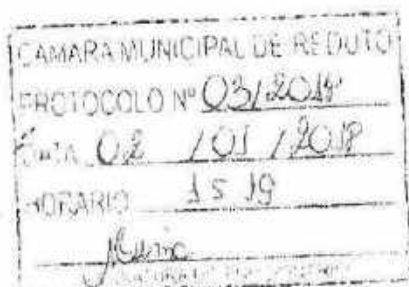 CAMARA MUNICIPAL DE REDUTO
PROTOCOLO Nº 03/2018
DATA 02 / 01 / 2018
HORARIO 15 19